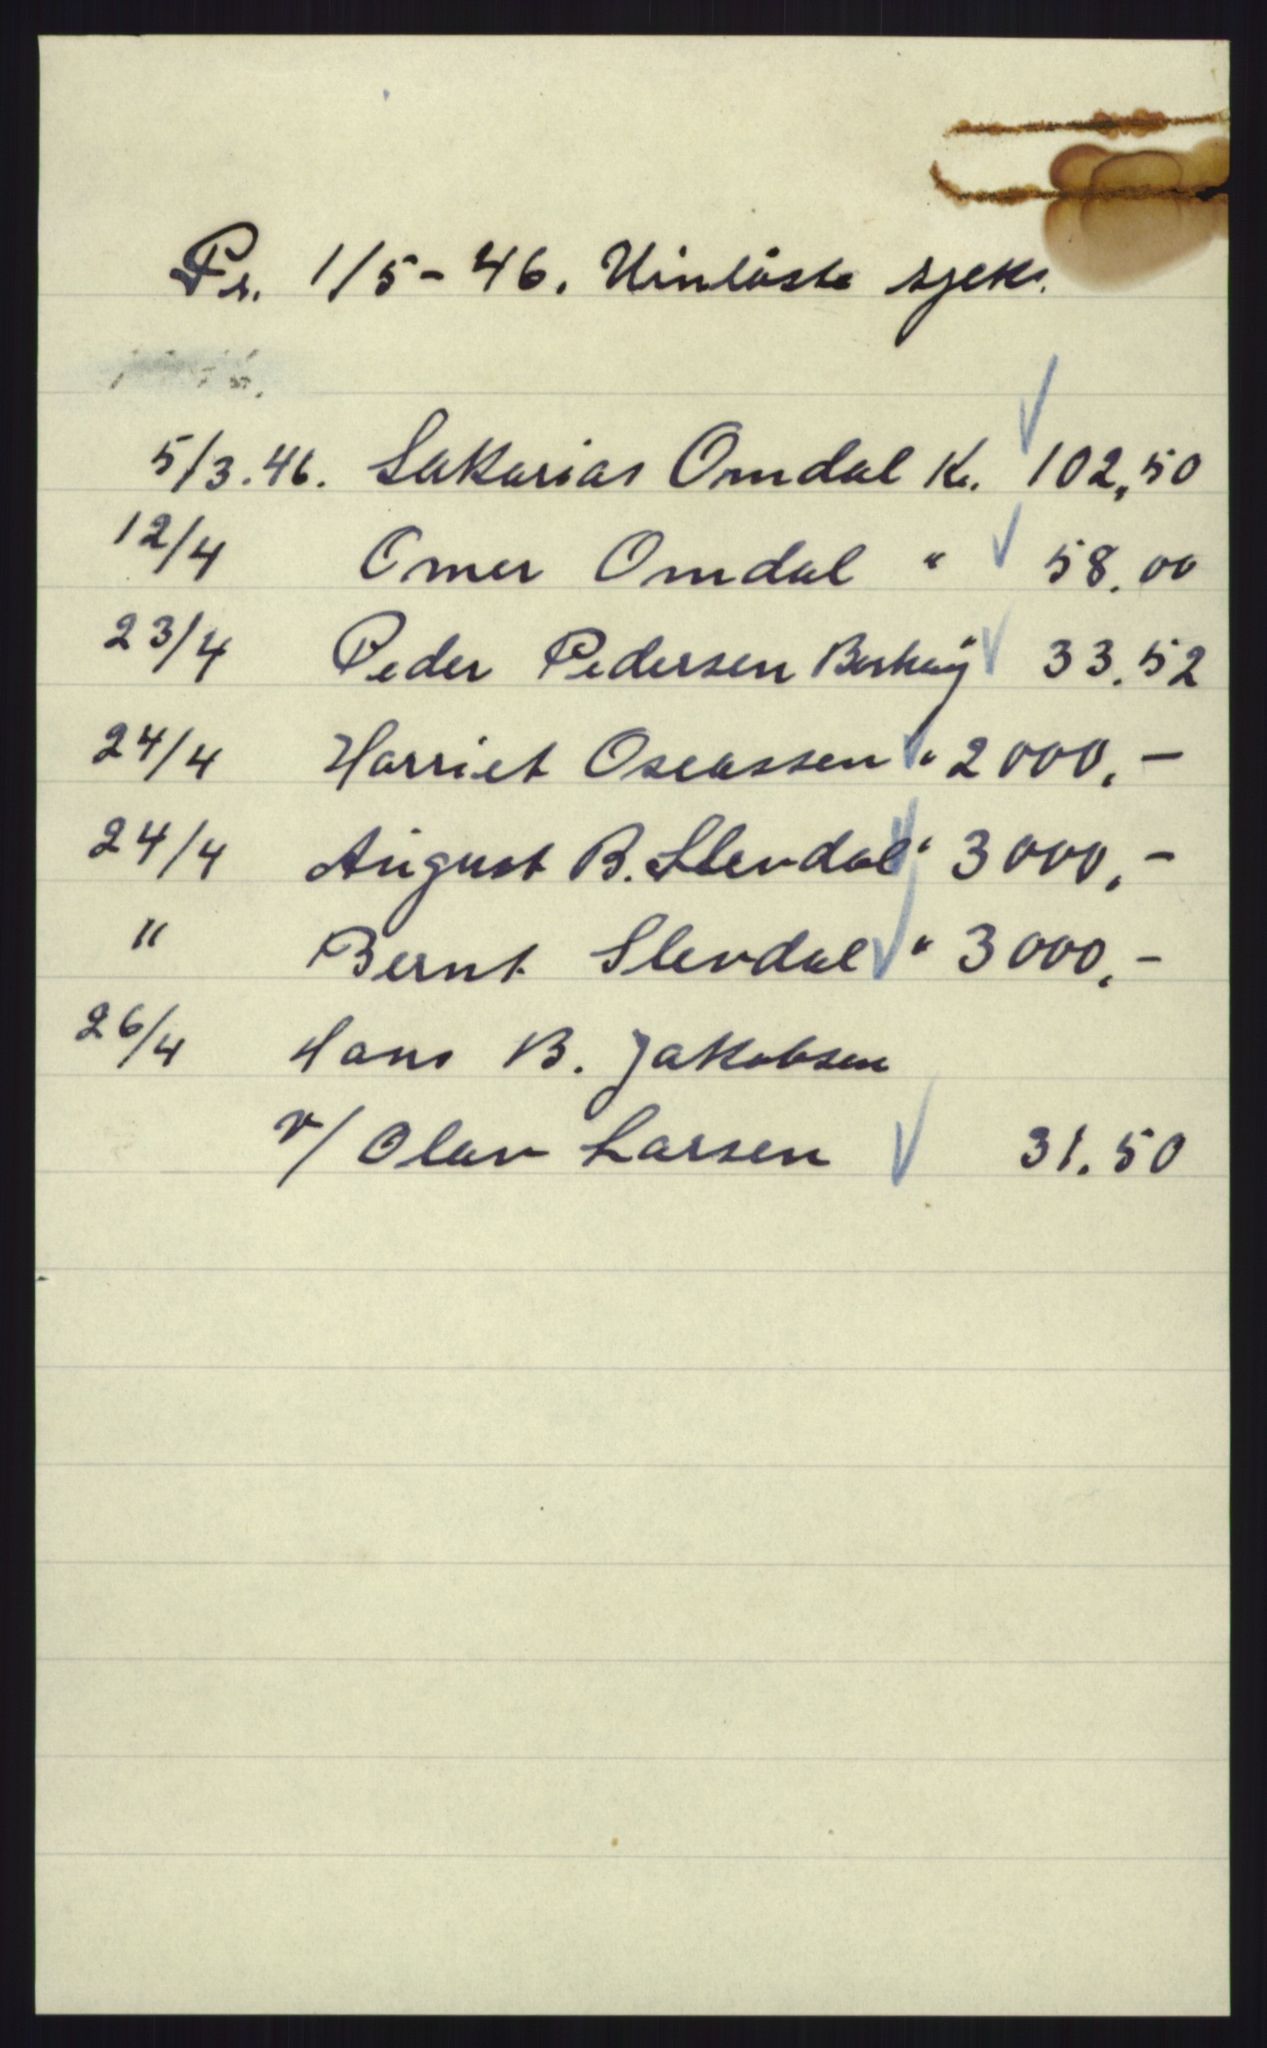 Pr. 1/5-46. Uinløste sjek.
5/3.46. Sakarias Omdal Kr. 102,50
12/4 Omer Omdal " 58.00
23/4 Peder Pedersen " 33.52
24/4 Harriet Oseassen " 2000.-
24/4 August B. Slevdal " 3000.-
" Bernt Slevdal " 3000.-
26/4 Hans B. Jakobsen
v/ Olav Larsen 31.50